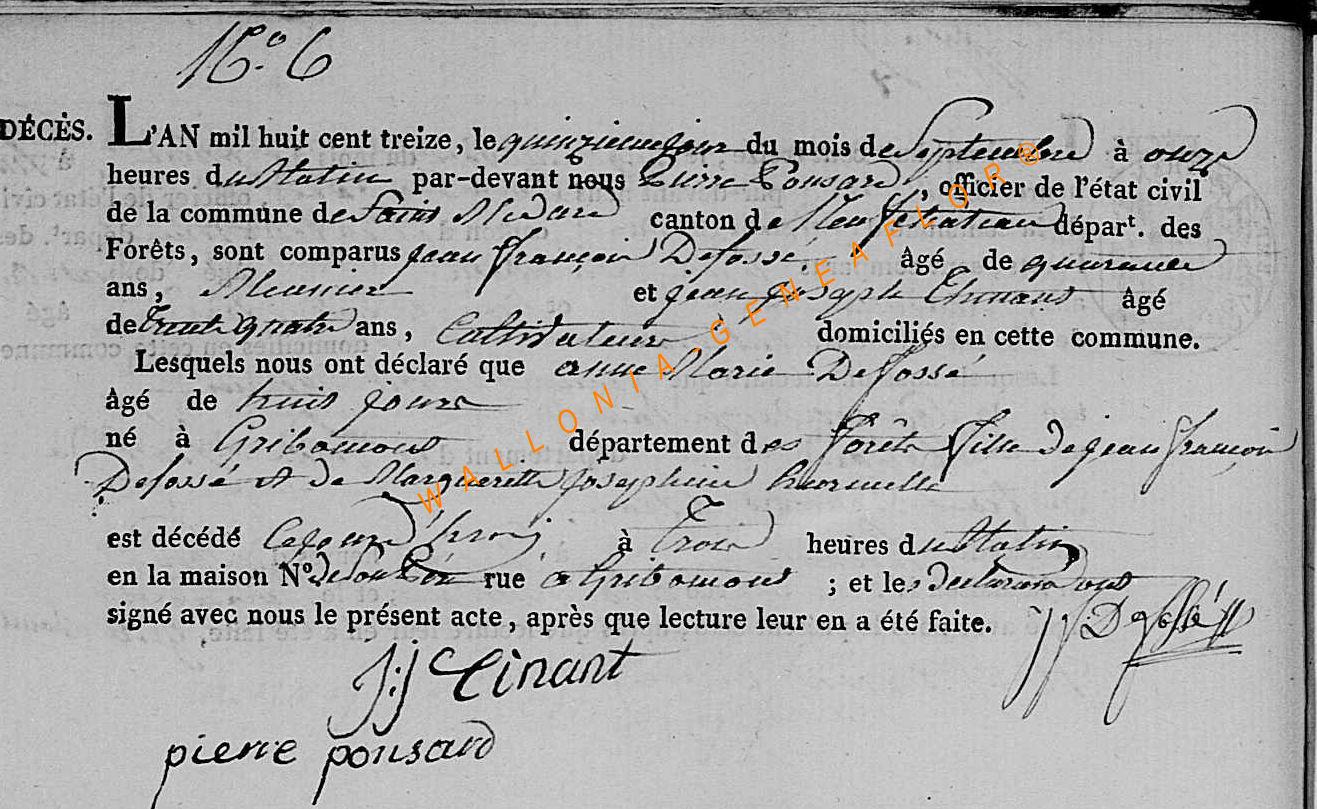 N.o 6
DÉCÈS. L'AN mil huit cent treize, le quinzieme jour du mois de Septembre à onze
heures du Matin par-devant nous Pierre Ponsard, officier de l'état civil
de la commune de Saint Medard canton de Neufchateau départ. des
Forêts, sont comparus jean françois Defossé, âgé de quarante
ans, Meunier et jean joseph âgé
de trente quatre ans, Cultivateur domiciliés en cette commune.
Lesquels nous ont déclaré que anne Marie Defossé
âgé de huit jours
né à Gribomont département des Forêts fille de jean françois
Defossé et de Marguerette josephine
est décédé Cejourd'huy à Trois heures du Matin
en la maison N° de son Père rue a Gribomont ; et les declarans ont
signé avec nous le présent acte, après que lecture leur en a été faite. J J Defossé
J:j Cinant
pierre ponsard
WALLONIA-GENEAFLOR®